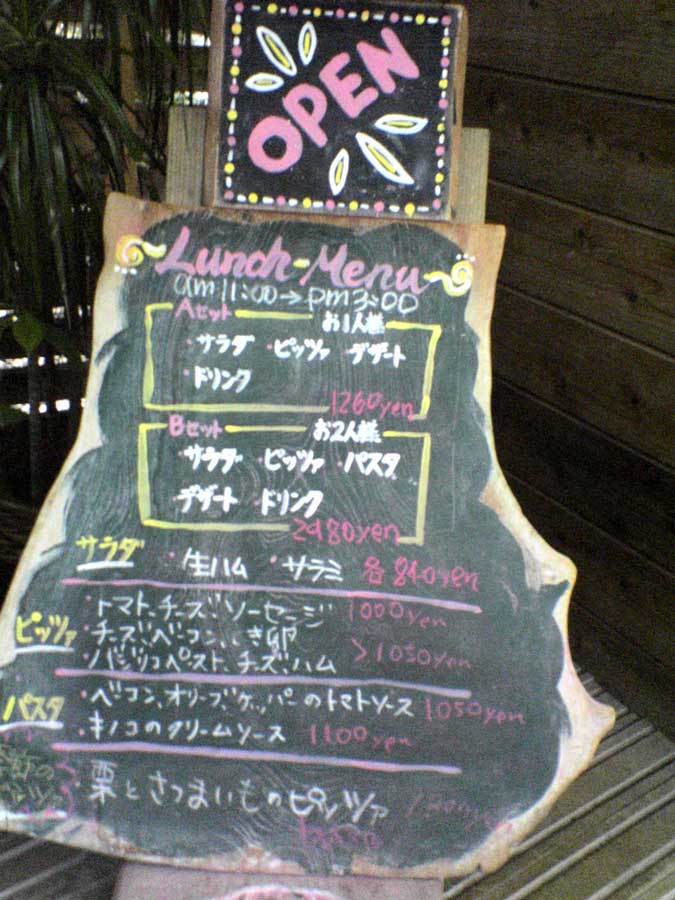 OPEN
Lunch-Menu
am11:00→pm3:00
Aセット お1人様
・サラダ ・ピッツァ ・デザート
・ドリンク
1260yen
Bセット お2人様
・サラダ ・ピッツァ ・パスタ
・デザート ・ドリンク
2980yen
サラダ ・生ハム ・サラミ 各840yen
・トマト、チーズ、ソーセージ 1000yen
ピッツァ ・チーズ、ベーコン、 卵
・バジリコペースト、チーズ、ハム >1050yen
パスタ ・ベーコン、オリーブ、ケッパーのトマトソース 1050yen
・キノコのクリームソース 1100yen
季節の
ピッツァ ・栗とさつまいものピッツァ